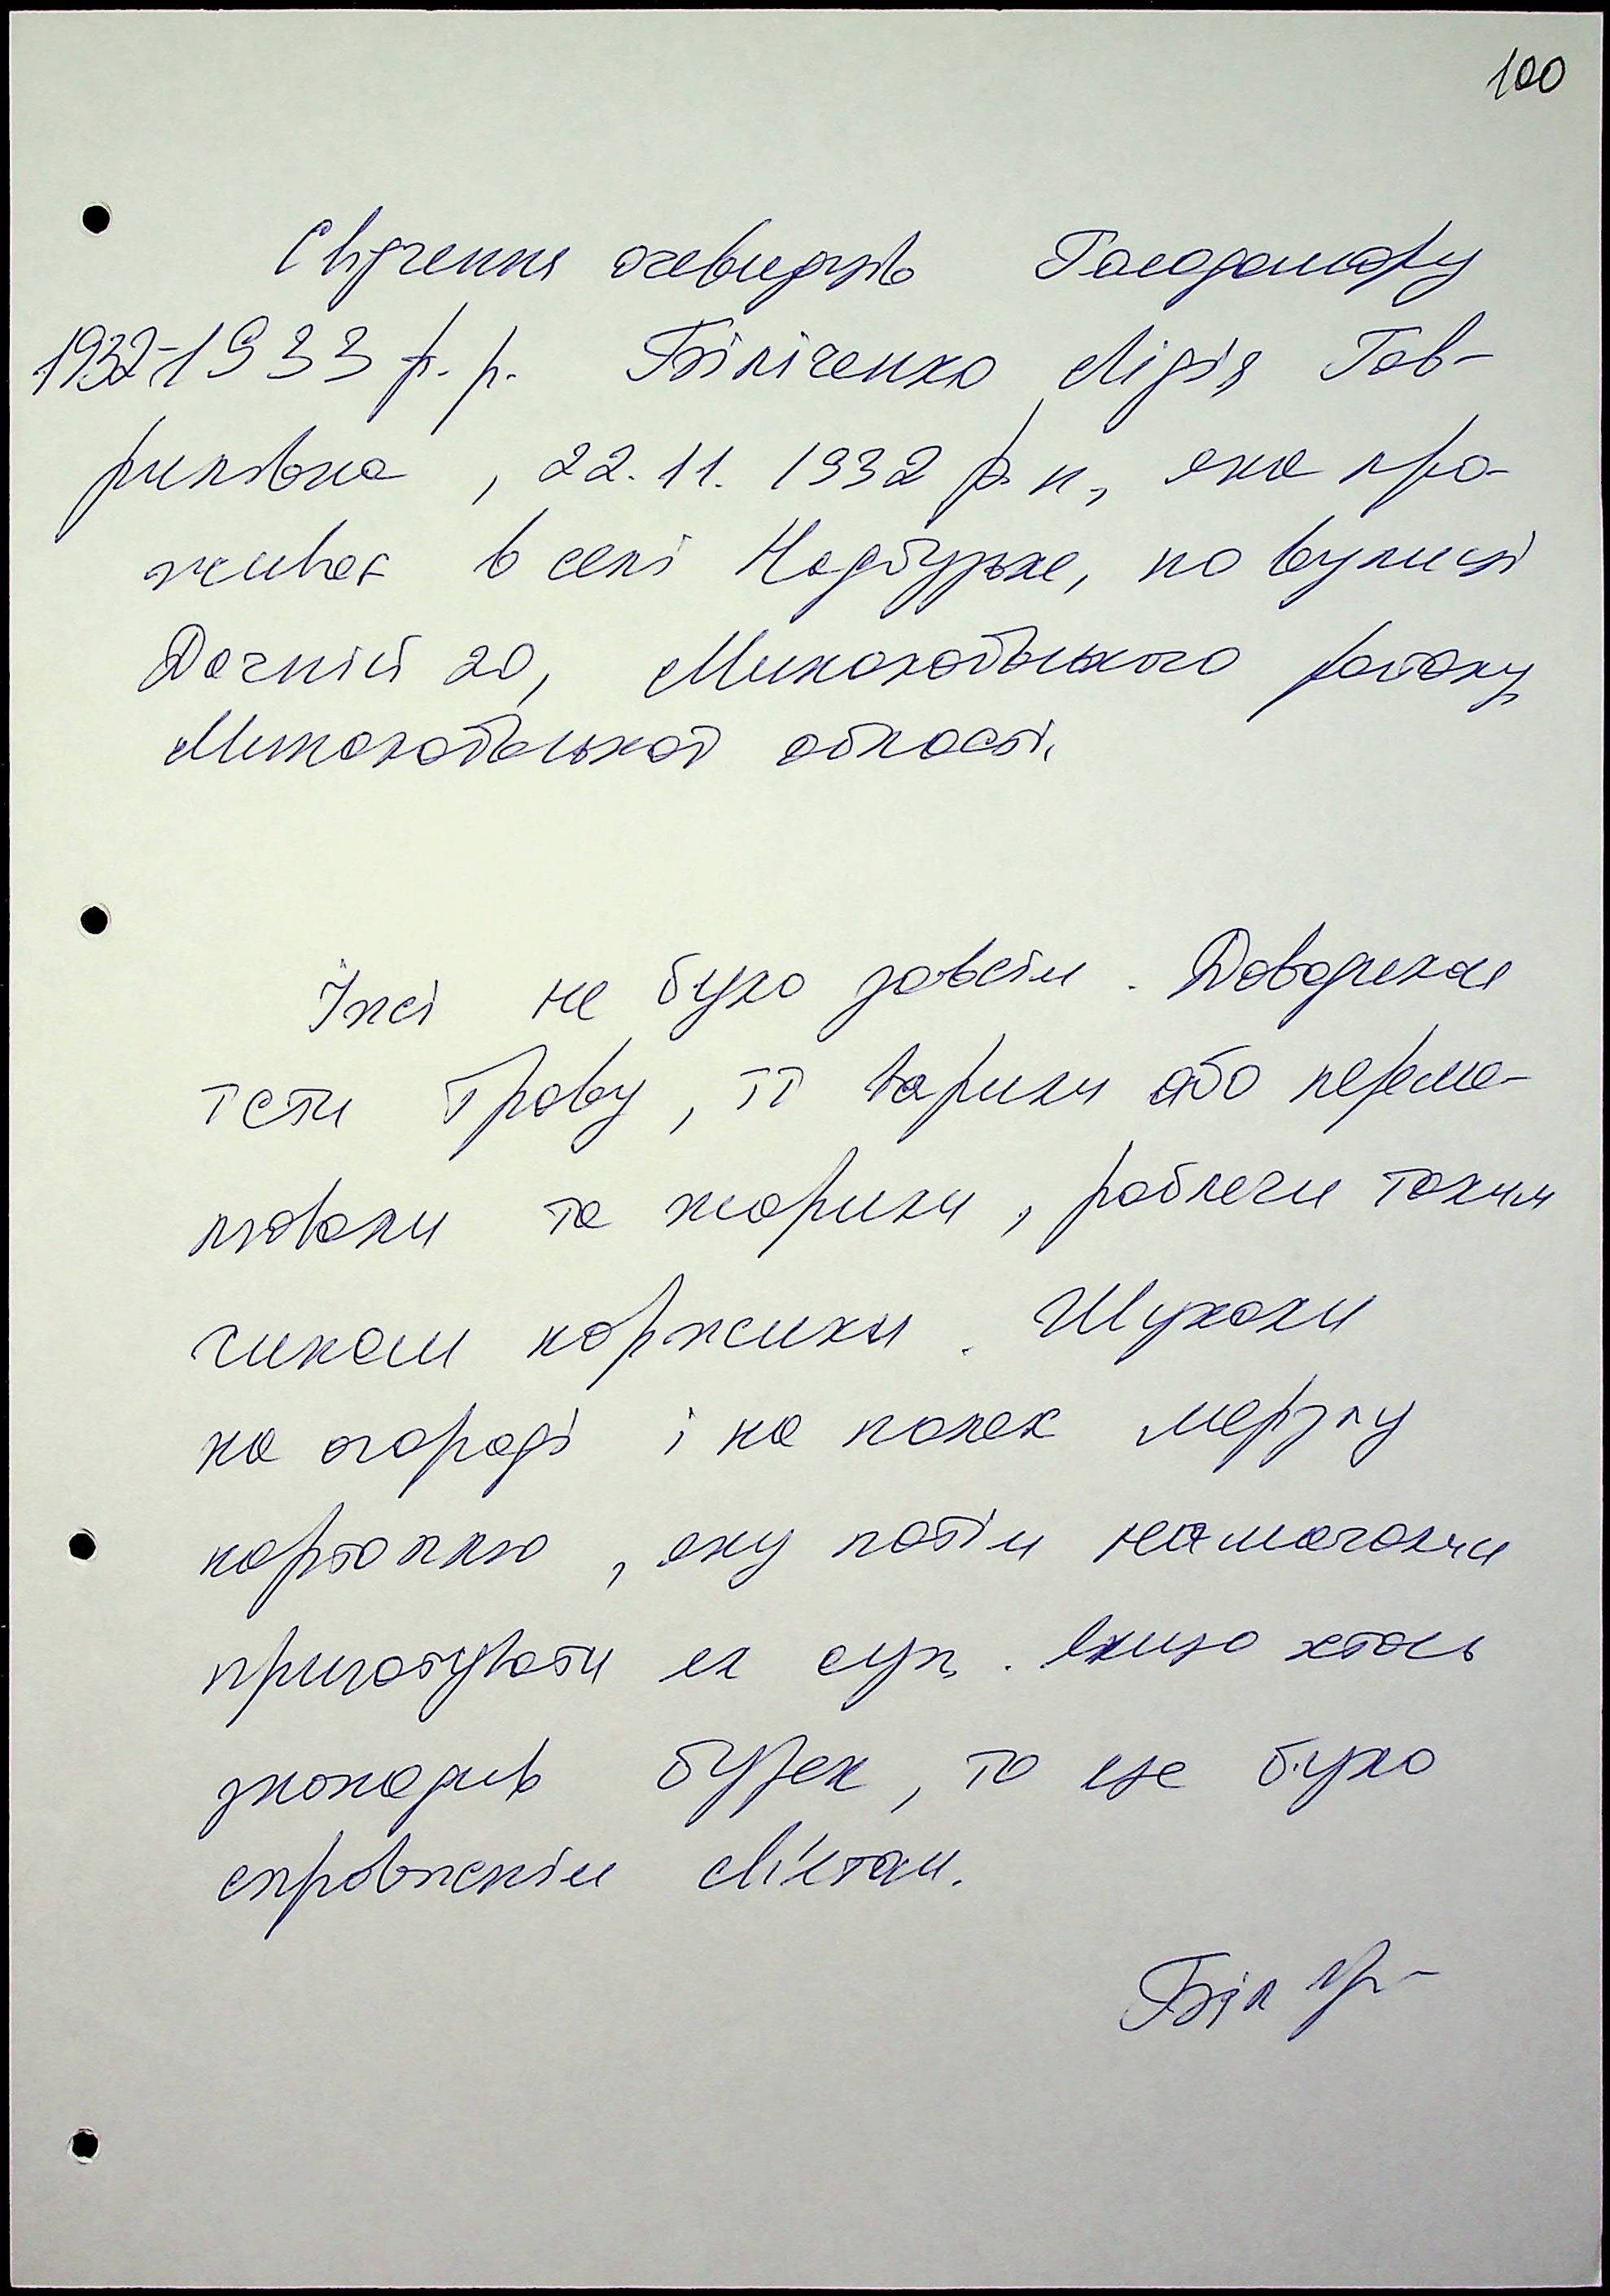 100
Свідчення очевидців Голодомору
1932-1933 р.р. Біліченко Лідія Гав-
рилівна, 22.11.1932 р.н., яка про-
живає в селі Надбузьке, по вулиці
Дачній 20, Миколаївського району
Миколаївської області.
Їжі не було зовсім. Доводилося
їсти траву, її варили або переме-
лювали та жарили, роблячи таким
чином коржики. Шукали
на огороді і на полях мерзлу
картоплю, яку потім намагалися
приготувати як суп. Якщо хтось
знаходив буряк, то це було
справжнім святом.
Біл